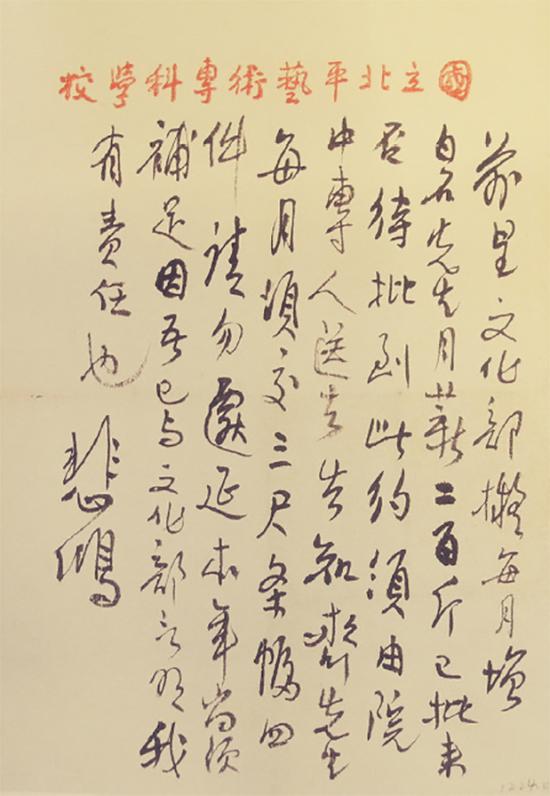 國立北平藝術專科學校
前呈文化部擬每月增
白石先生月薪二百斤已批未
否待批到此約須由院
中專人送去告知齊先生
每月須交三尺条幅四
件請勿遲延本年尚須
補足因吾已与文化部言明我
有責任也
悲鴻